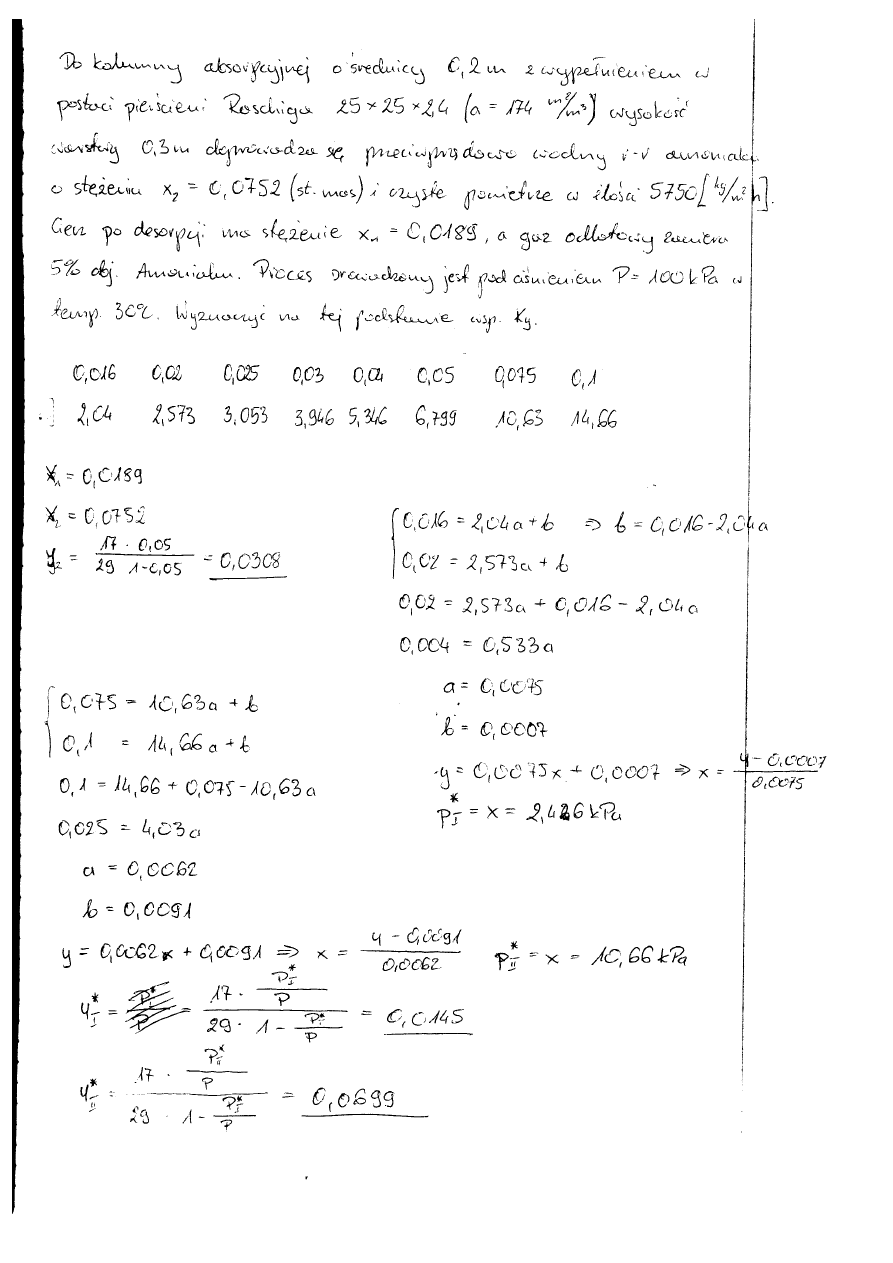 Do kolumny absorpcyjnej o średnicy 0,2 m z wypełnieniem w
postaci pierścieni Raschiga 25×25×2,4 (a = 174 m²/m³) wysokość
warstwy 0,3m doprowadza się przeciwprądowo wodny r-r amoniaku
o stężeniu x₂ = 0,0752 (st. mas) i czyste powietrze w ilości 5750 [kg/m²h].
Ciecz po desorpcji ma stężenie x₁ = 0,0189, a gaz odlotowy zawiera
5% obj. Amoniaku. Proces prowadzony jest pod ciśnieniem P = 100 kPa w
temp. 30°C. Wyznaczyć na tej podstawie wsp. Ky.
0,016 0,02 0,025 0,03 0,04 0,05 0,075 0,1
.] 2,04 2,573 3,053 3,946 5,346 6,799 10,63 14,66
X₁ = 0,0189
X₂ = 0,0752
y₂ = (17 · 0,05)/(29 1-0,05) = 0,0308
{ 0,016 = 2,04a + b ⇒ b = 0,016 - 2,04a
0,02 = 2,573a + b
0,02 = 2,573a + 0,016 - 2,04a
0,004 = 0,533a
a = 0,0075
b = 0,0007
y = 0,0075x + 0,0007 ⇒ x = (y - 0,0007)/0,0075
P*_I = x = 2,426 kPa
{ 0,075 = 10,63a + b
0,1 = 14,66a + b
0,1 = 14,66 + 0,075 - 10,63a
0,025 = 4,03a
a = 0,0062
b = 0,0091
y = 0,0062x + 0,0091 ⇒ x = (y - 0,0091)/0,0062 P*_II = x = 10,66 kPa
y*_I = (17 · P*_I/P)/(29 · 1 - P*_I/P) = 0,0145
y*_II = (17 · P*_II/P)/(29 · 1 - P*_I/P) = 0,0699